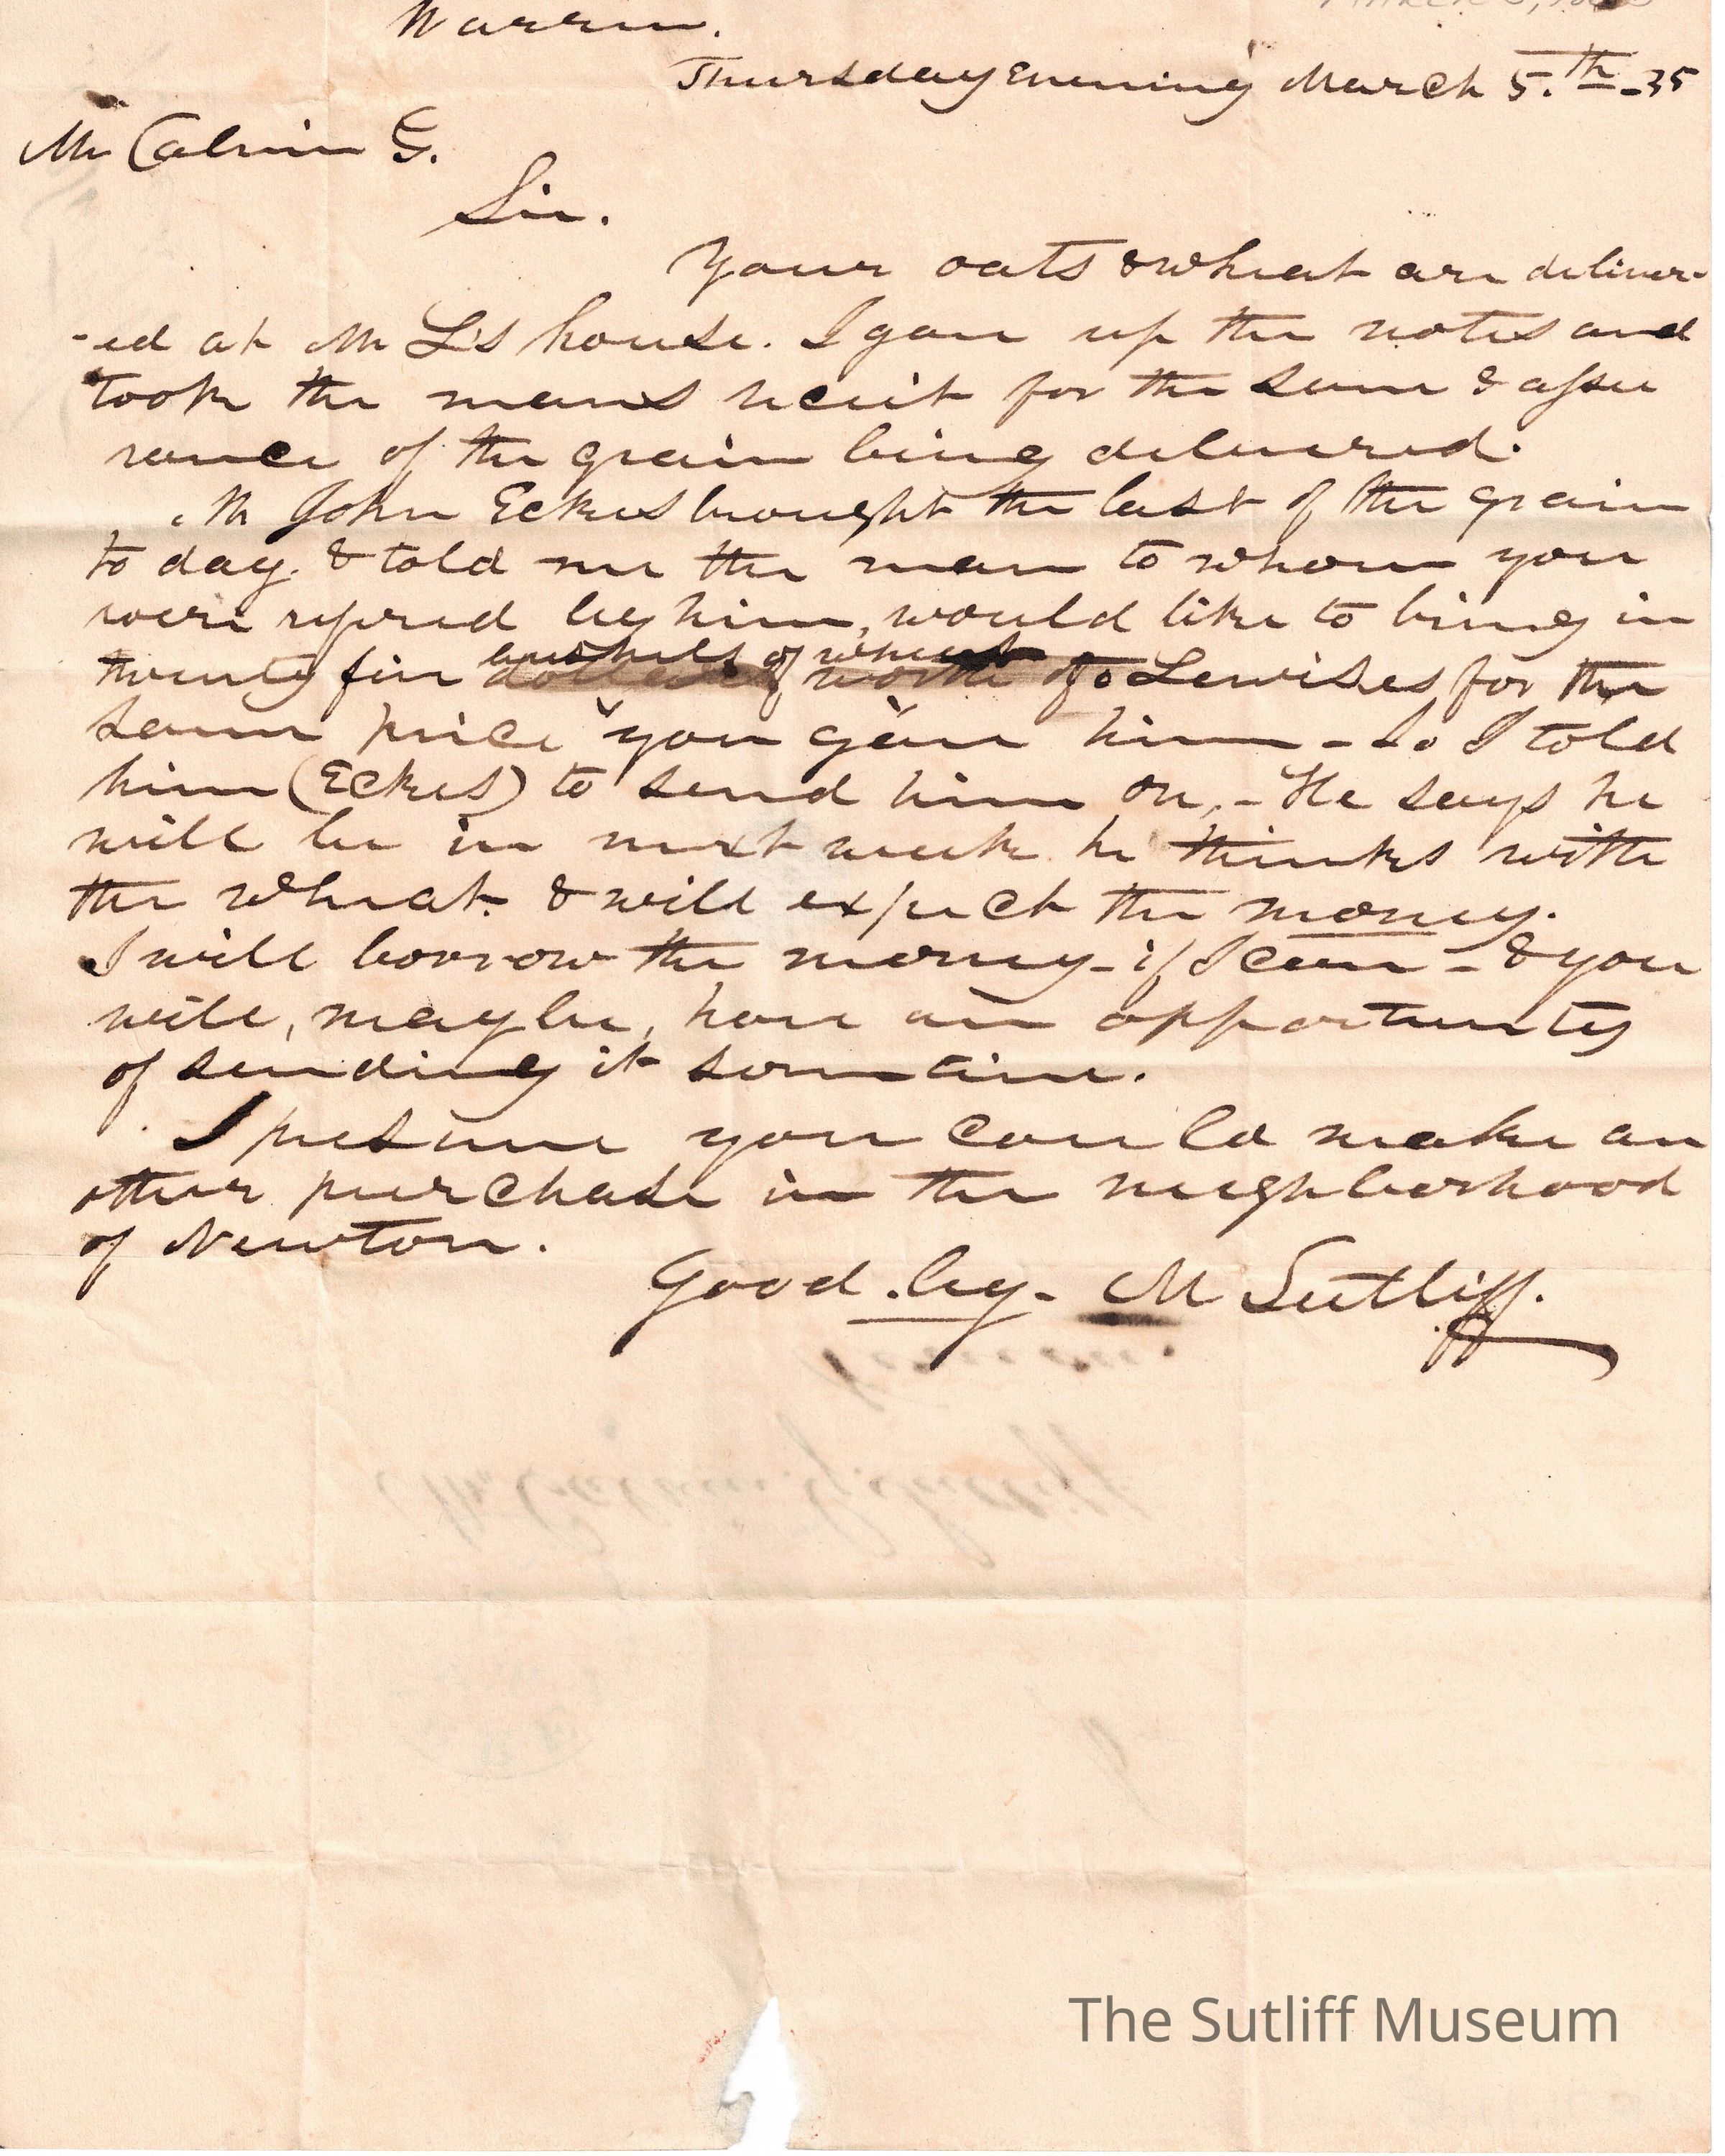 Warren.
Thursday Evening March 5.th -35
Mr Calvin G.
Sir.
Your oats & wheat are deliver-
-ed at Mr L's house. I gave up the notes and
took the mans receit for the same & assu
rance of the grain being delivered.
Mr John Eckes brought the last of the grain
to day. & told me the man to whom you
were refered by him, would like to bring in
bushels of wheat
twenty five dollars worth to Lewises for the
same price "you gave" him - So I told
him (Eckes) to send him on, - He says he
will be in next week he thinks with
the wheat. & will expect the money.
I will borrow the money - if I can - & you
will, maybe, have an opportunity
of sending it sometime.
I presume you could make an
other purchase in the neighborhood
of Newton.
Good .by - M Sutliff.
Mr Calvin G. Sutliff
The Sutliff Museum